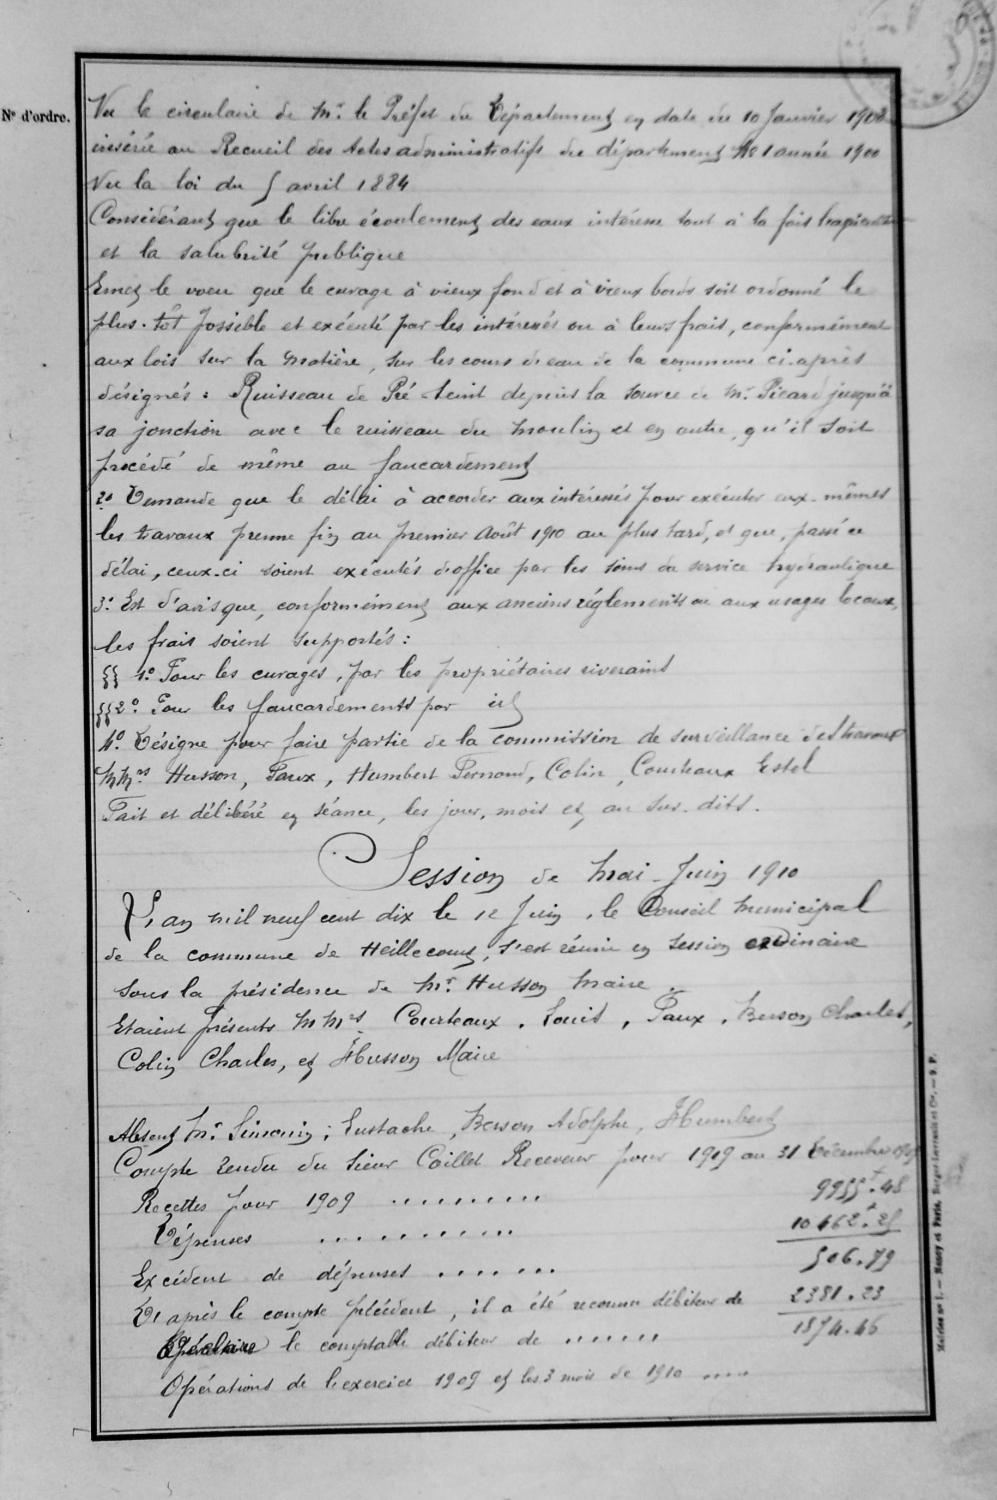 N° d'ordre.
Vu la circulaire de Mr. le Préfet du Département en date du 10 Janvier 1902
insérée au Recueil des Actes administratifs du département No 1 année 1900
Vu la loi du 5 avril 1884
Considérant que le libre écoulement des eaux intéresse tout à la fois
et la salubrité publique
Emet le voeu que le curage à vieux fond et à vieux bords soit ordonné le
plus-tôt possible et exécuté par les intéressés ou à leurs frais, conformément
aux lois sur la matière, sur les cours d'eau de la commune ci-après
désignés : Ruisseau de Pré-teint depuis la source de Mr. Picard jusqu'à
sa jonction avec le ruisseau du Moulin et en outre, qu'il soit
procédé de même au faucardement
2° Demande que le délai à accorder aux intéressés pour exécuter eux-mêmes
les travaux prenne fin au premier Août 1910 au plus tard, et que, passé ce
délai, ceux-ci soient exécutés d'office par les soins du service hydraulique
3° Est d'avis que, conformément aux anciens règlements ou aux usages locaux,
les frais soient supportés :
§§ 1.° Pour les curages, par les propriétaires riverains
§§ 2°. Pour les faucardements par id
4° Désigne pour faire partie de la commission de surveillance des travaux
MMrs Husson, Paux, Humbert Fernand, Colin, Courteaux Estel
Fait et délibéré en séance, les jour, mois et an sus-dits.
Session de Mai-Juin 1910
L'an mil neuf cent dix le 12 Juin, le Conseil Municipal
de la commune de Heillecourt, s'est réuni en session ordinaire
sous la présidence de Mr. Husson Maire.
Etaient présents MMrs. Courteaux, Louis, Paux, Berson Charles,
Colin Charles, et Husson Maire
Absent Mr. Simonin ; Eustache, Berson Adolphe, Humbert
Compte rendu du Sieur Caillet Receveur pour 1909 au 31 Décembre 1909
Recettes pour 1909 .......... 9955f.48
Dépenses ........... 10462f.27
Excédent de dépenses ....... 506.79
D'après le compte précédent, il a été reconnu débiteur de 2381.23
le comptable débiteur de ....... 1874.46
Opérations de l'exercice 1909 et les 3 mois de 1910 ....
Berger-Levrault et Cie. — 9. P.
Nancy et Paris.